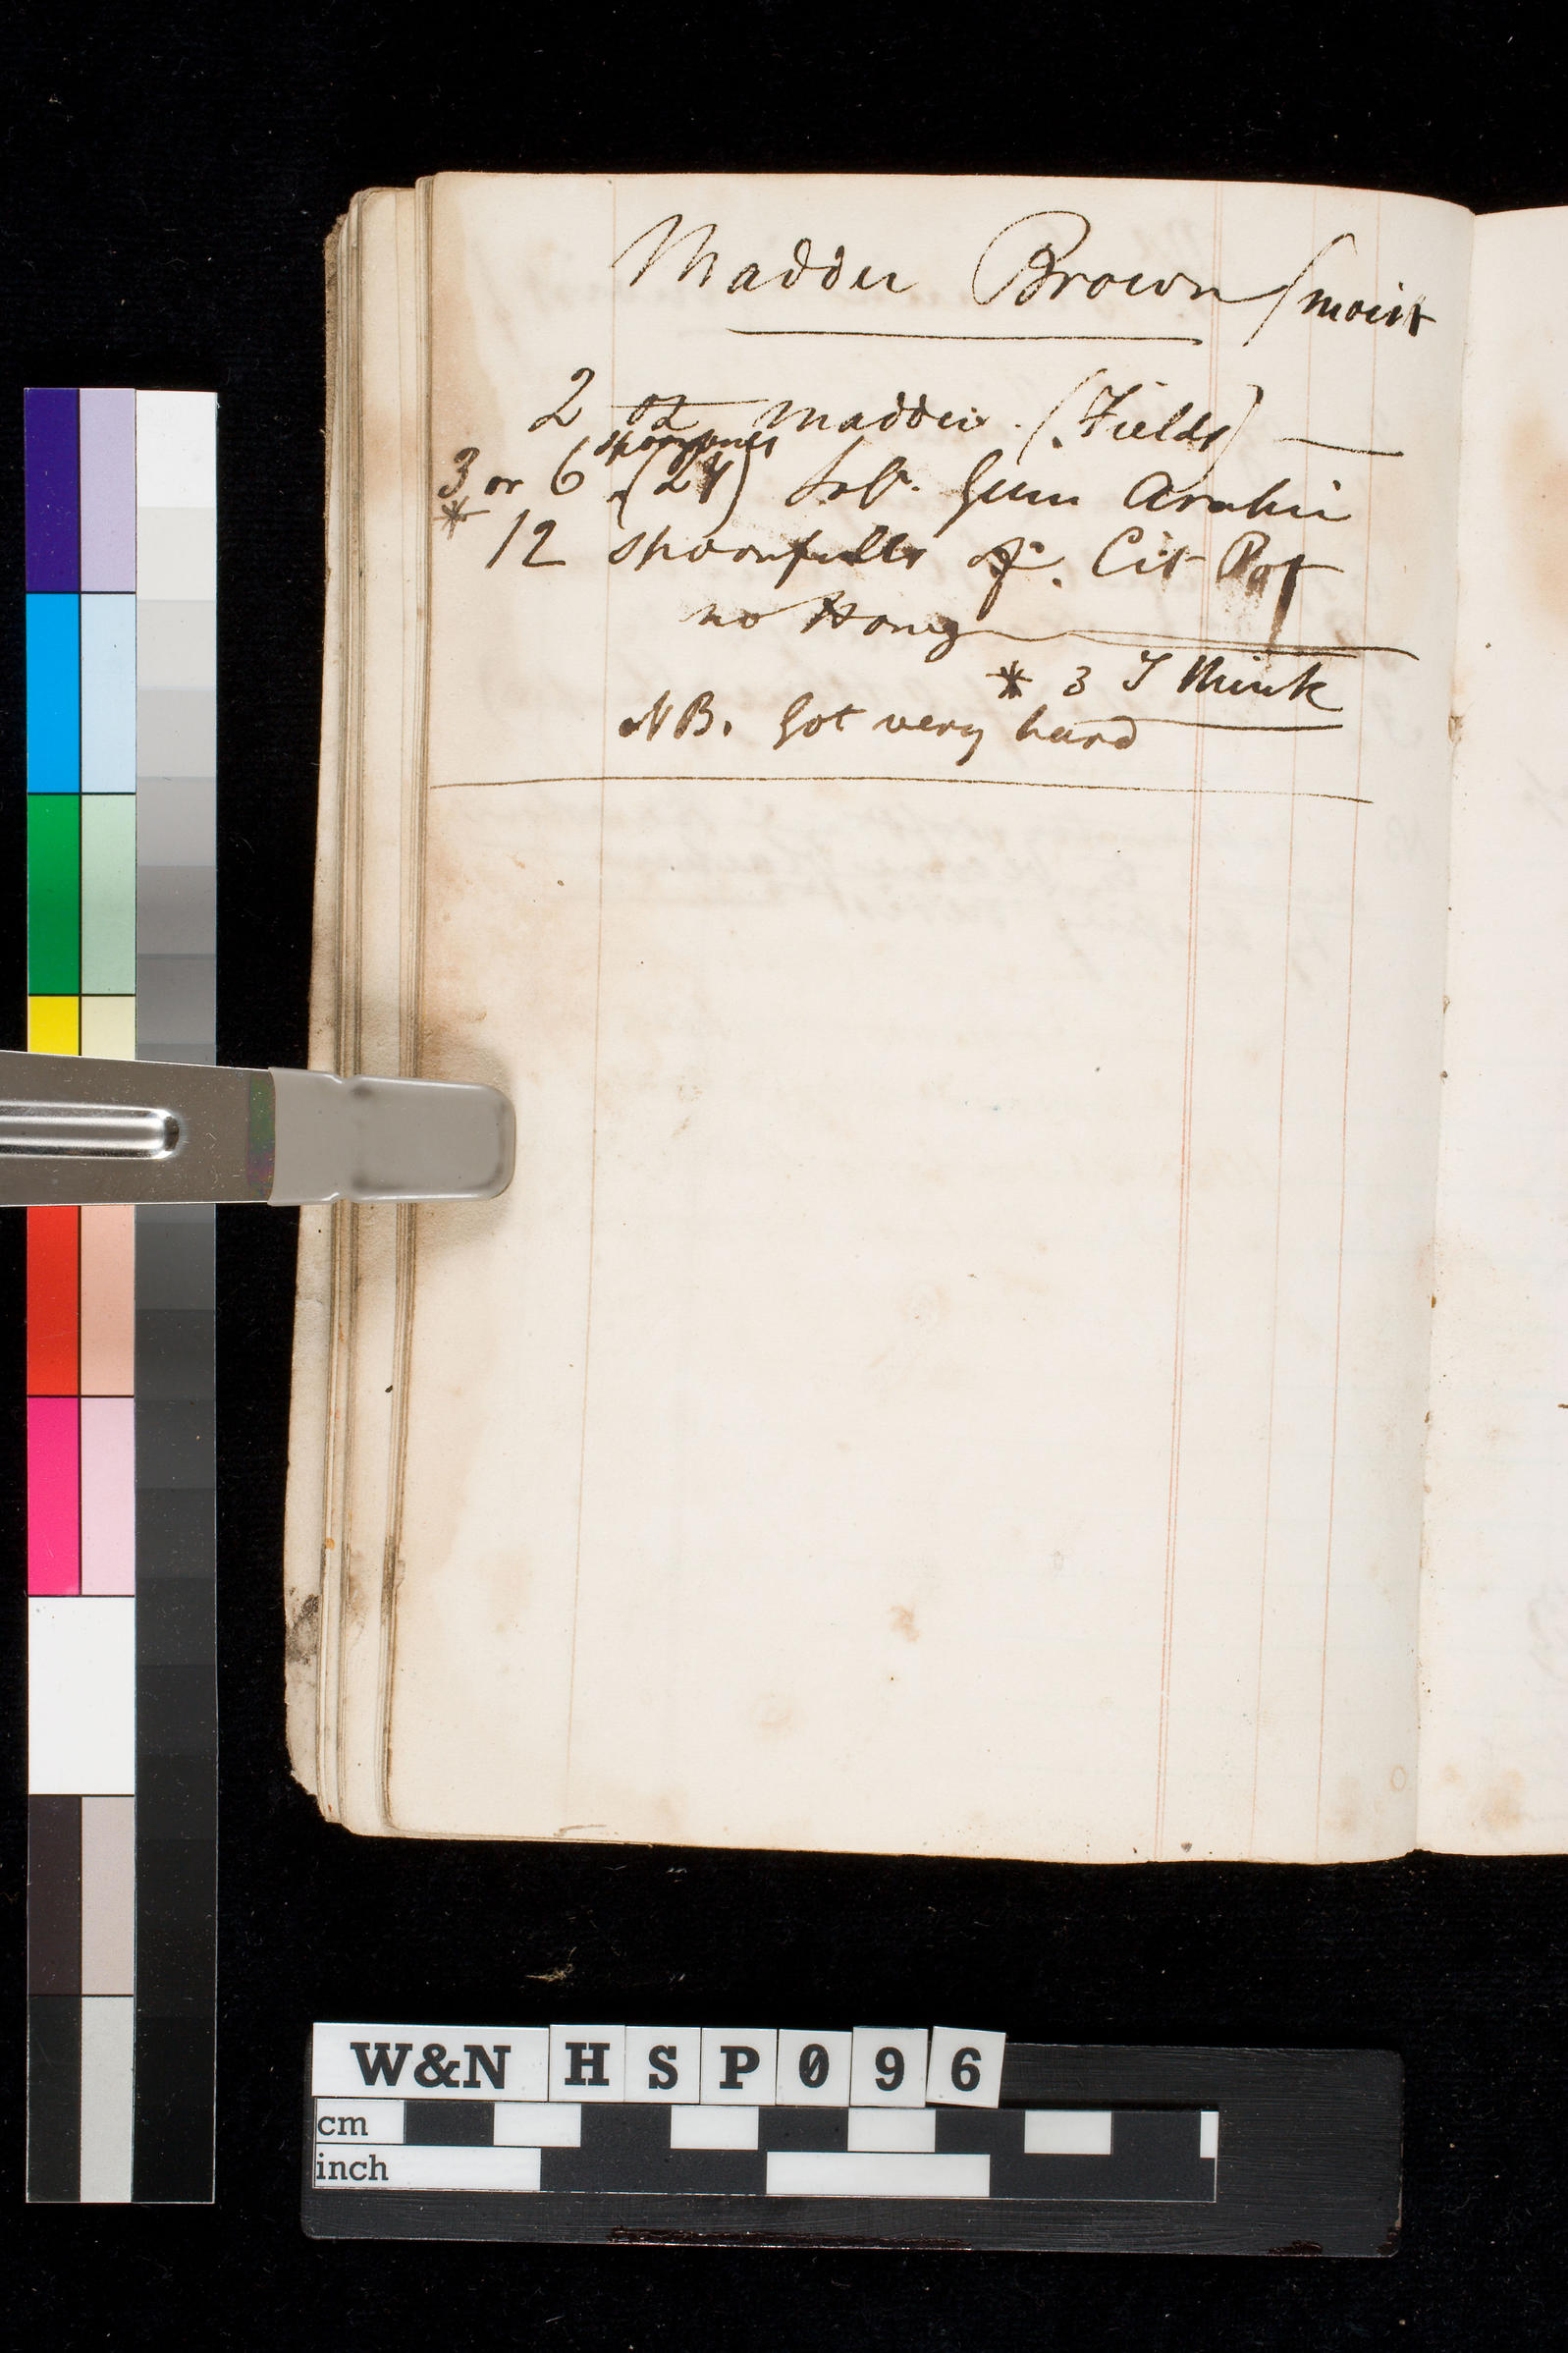 Madder Brown / moist
2 oz Madder (Fields)
spoonfuls
3 or 6 (24) Sol. Gum Arabic
*
12 spoonfulls of. Cit Pot
no Honey
* 3 I think
NB. Got very hard
W&N HSP096
cm
inch